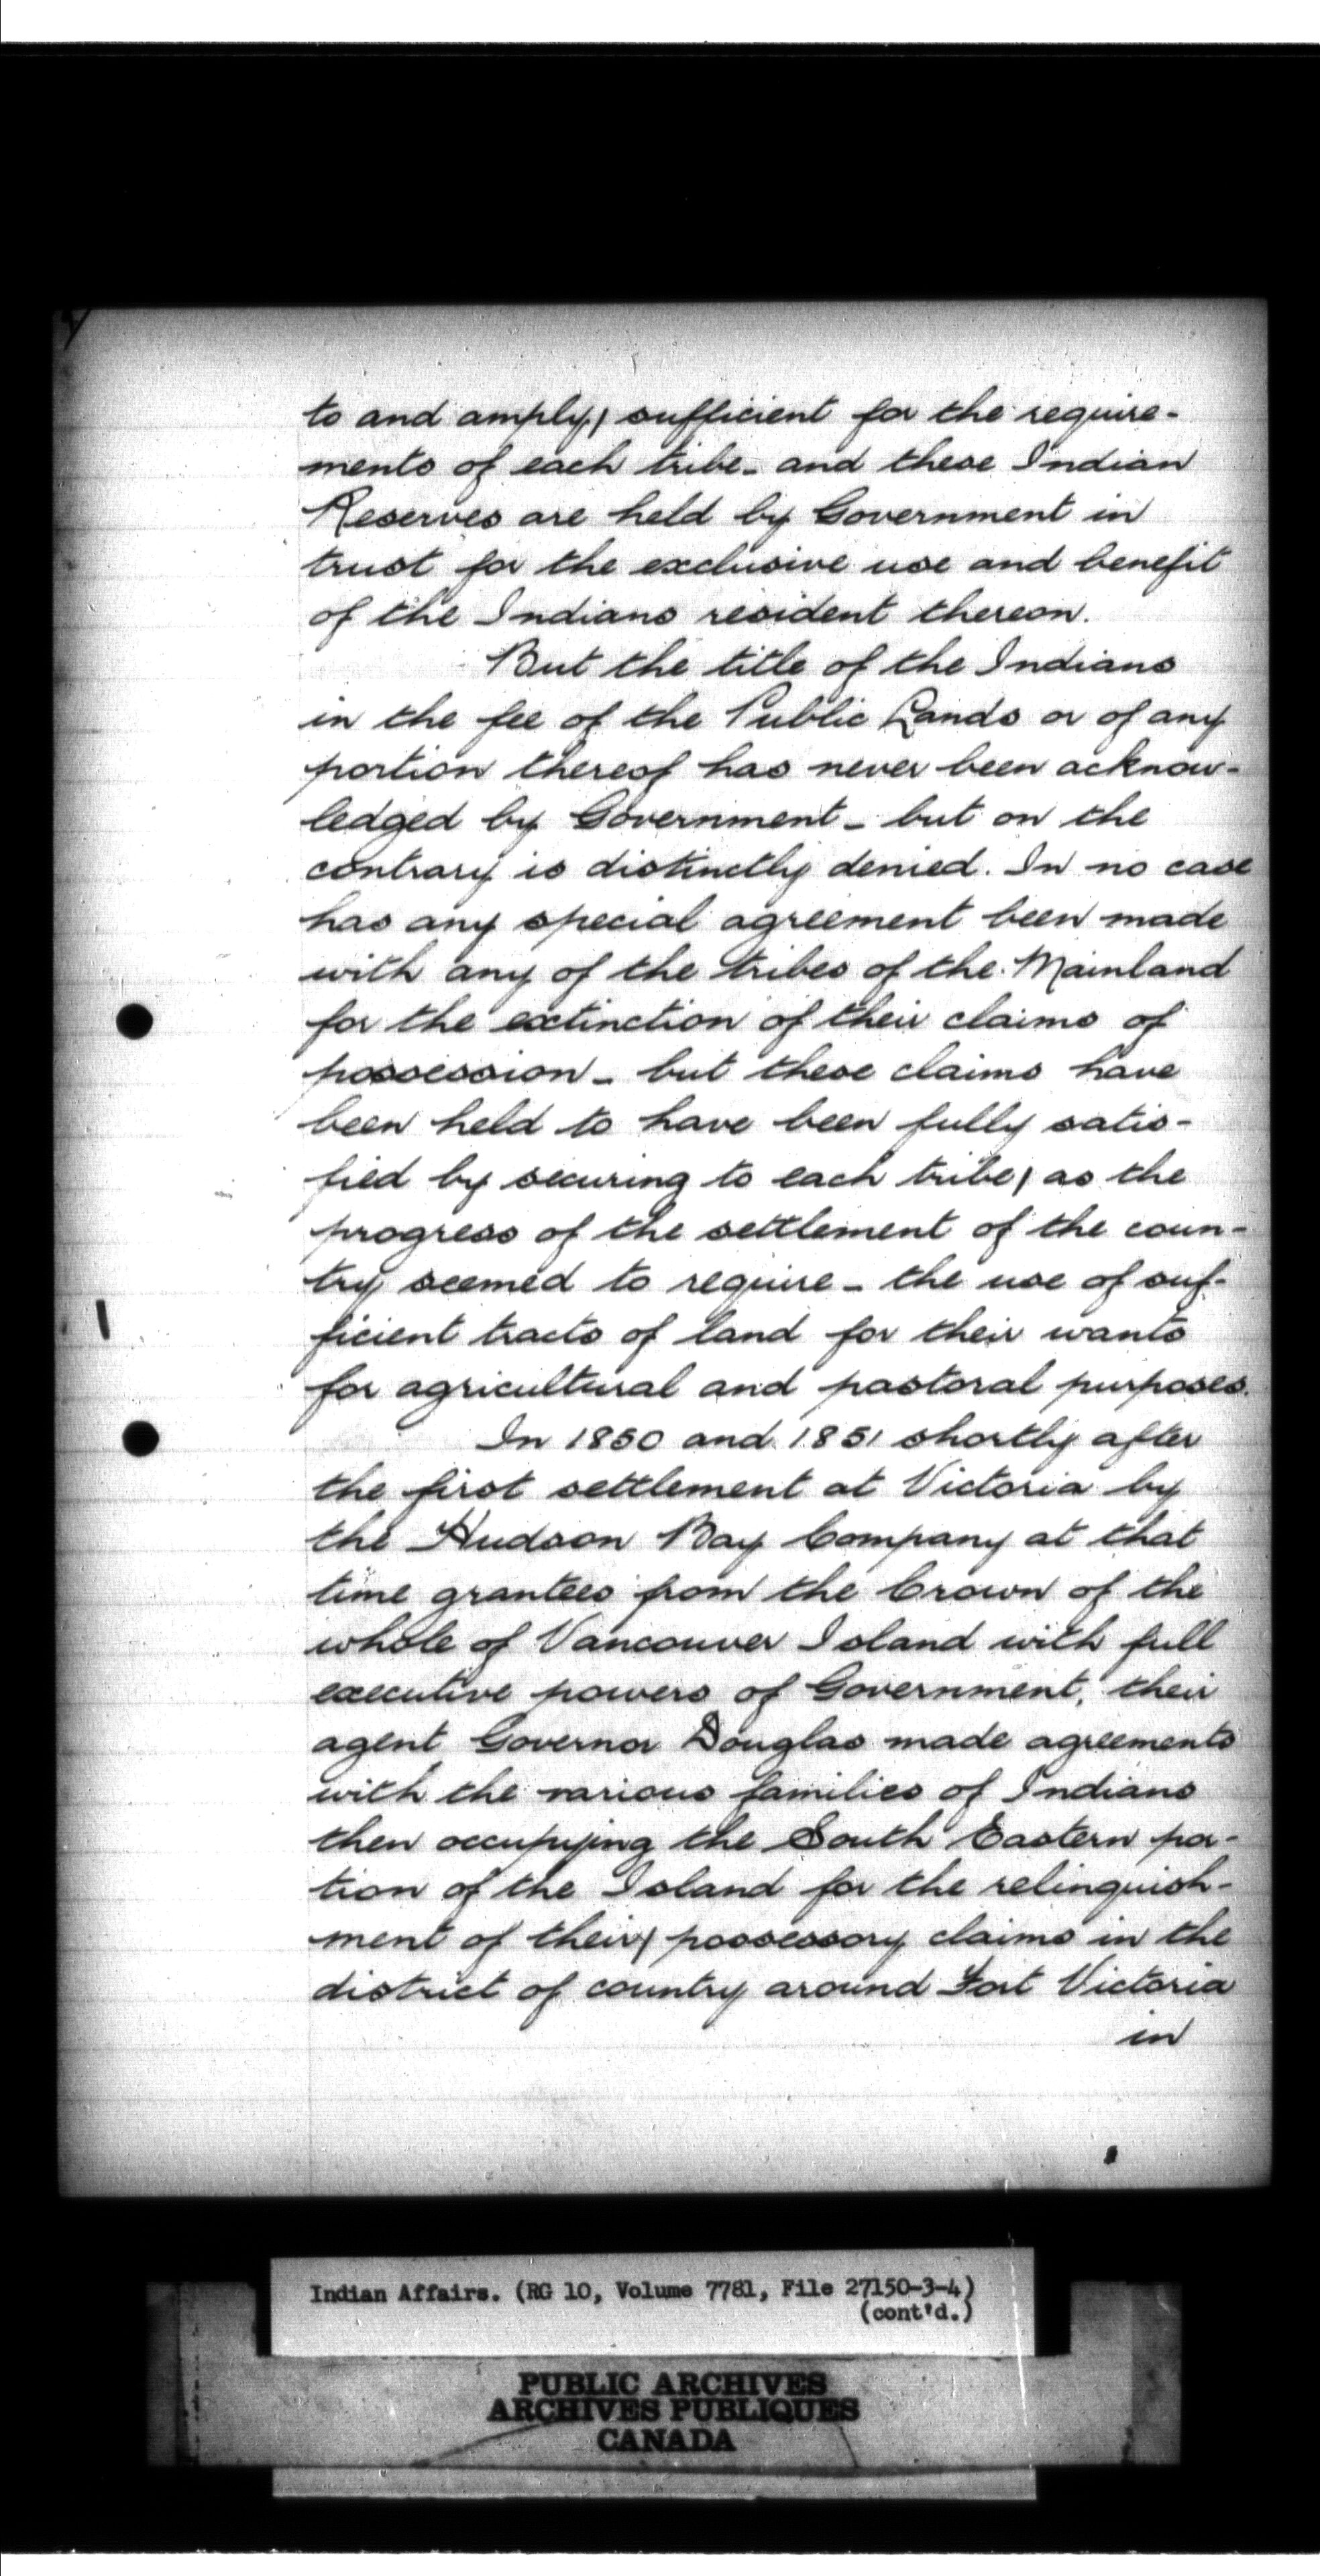 to and amply) sufficient for the require-
ments of each tribe - and these Indian
Reserves are held by Government in
trust for the exclusive use and benefit
of the Indians resident thereon.
But the title of the Indians
in the fee of the Public Lands or of any
portion thereof has never been acknow-
ledged by Government - but on the
contrary is distinctly denied. In no case
has any special agreement been made
with any of the tribes of the Mainland
for the extinction of their claims of
possession - but these claims have
been held to have been fully satis-
fied by securing to each tribe, as the
progress of the settlement of the coun-
try seemed to require - the use of suf-
ficient tracts of land for their wants
for agricultural and pastoral purposes.
In 1850 and 1851 shortly after
the first settlement at Victoria by
the Hudson Bay Company at that
time grantees from the Crown of the
whole of Vancouver Island with full
executive powers of Government, their
agent Governor Douglas made agreements
with the various families of Indians
then occupying the South Eastern por-
tion of the Island for the relinquish-
ment of their possessory claims in the
district of country around Fort Victoria
in
Indian Affairs. (RG 10, Volume 7781, File 27150-3-4)
(cont'd.)
PUBLIC ARCHIVES
ARCHIVES PUBLIQUES
CANADA